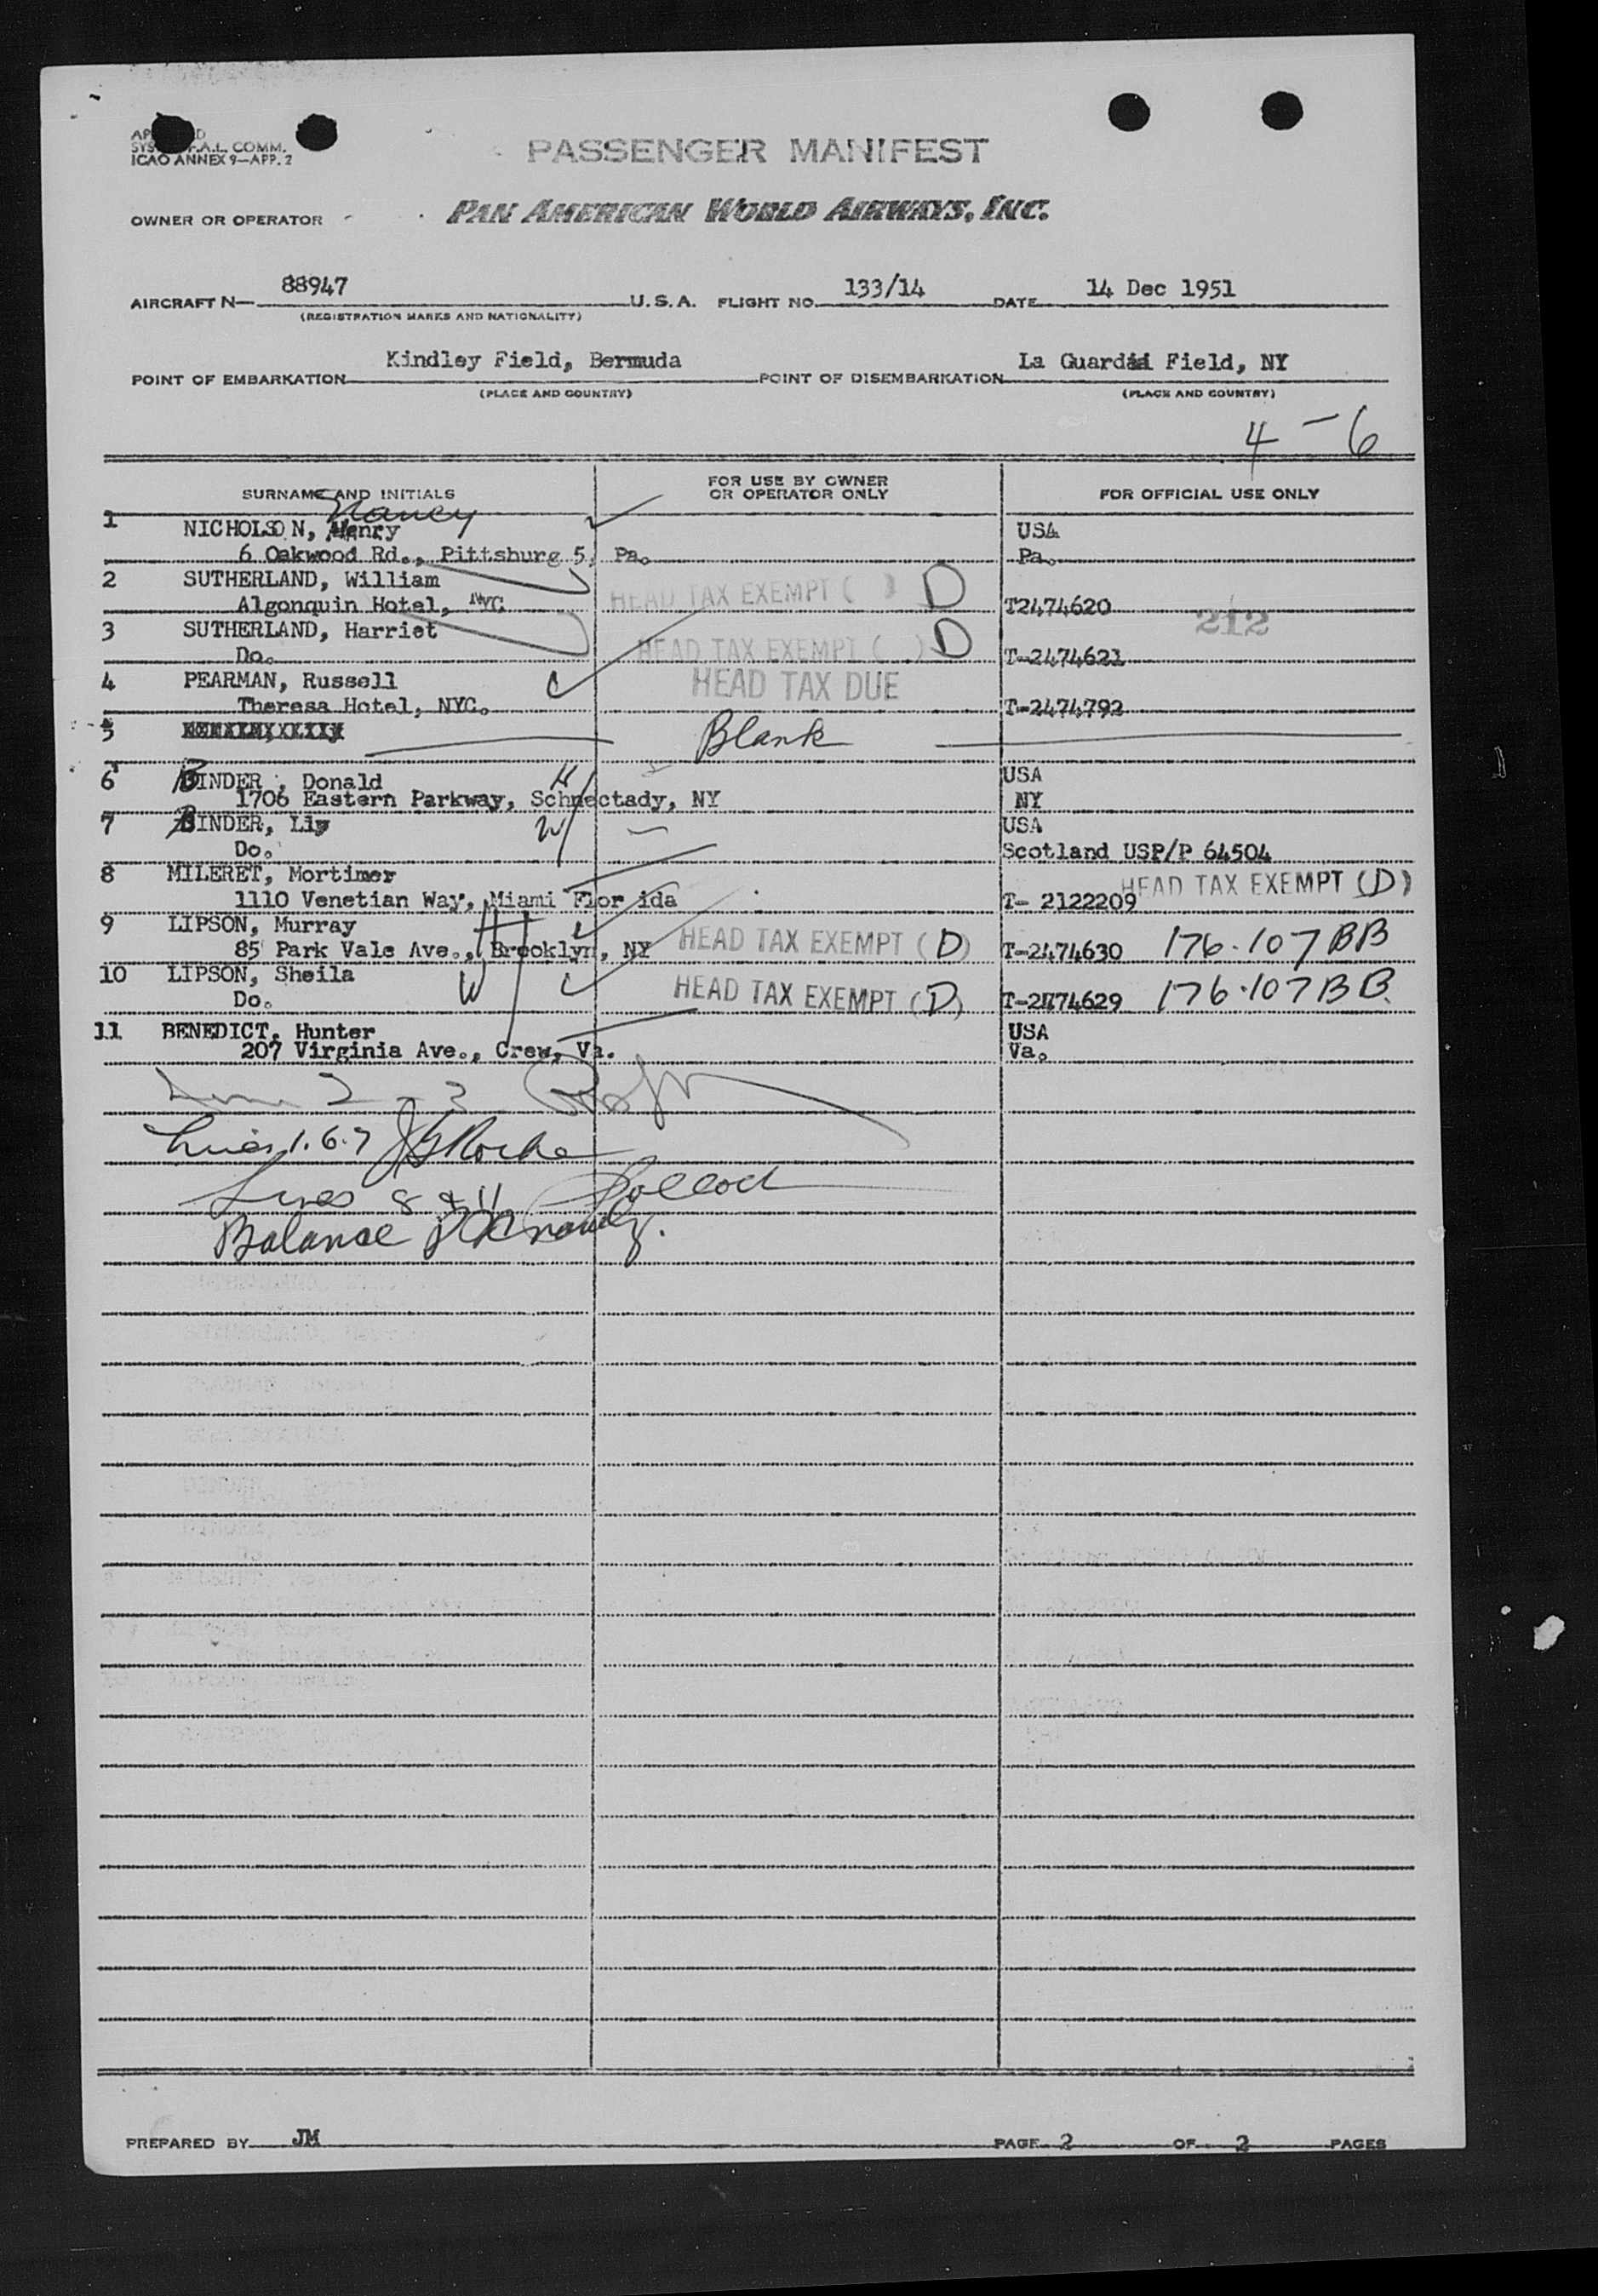 ICAO ANNEX 9—APP. 2
PASSENGER MANIFEST
OWNER OR OPERATOR PAN AMERICAN WORLD AIRWAYS, INC.
AIRCRAFT N— 88947 U.S.A. FLIGHT NO. 133/14 DATE 14 Dec 1951
(REGISTRATION MARKS AND NATIONALITY)
POINT OF EMBARKATION Kindley Field, Bermuda POINT OF DISEMBARKATION La Guardia Field, NY
(PLACE AND COUNTRY) (PLACE AND COUNTRY)
4 - 6
SURNAME AND INITIALS FOR USE BY OWNER OR OPERATOR ONLY FOR OFFICIAL USE ONLY
Nancy
1 NICHOLSON, Henry USA
6 Oakwood Rd., Pittsburg 5, Pa. Pa.
2 SUTHERLAND, William HEAD TAX EXEMPT ( ) D
Algonquin Hotel, NYC T2474620 212
3 SUTHERLAND, Harriet HEAD TAX EXEMPT ( ) D
Do. T-2474621
4 PEARMAN, Russell HEAD TAX DUE
Theresa Hotel, NYC. T-2474792
5 Blank
6 BINDER, Donald USA
1706 Eastern Parkway, Schnectady, NY NY
7 BINDER, Liy USA
Do. Scotland USP/P 64504
8 MILERET, Mortimer HEAD TAX EXEMPT (D)
1110 Venetian Way, Miami Flor ida T- 2122209
9 LIPSON, Murray
85 Park Vale Ave., Brooklyn, NY HEAD TAX EXEMPT (D) T-2474630 176.107BB
10 LIPSON, Sheila
Do. HEAD TAX EXEMPT (D) T-2474629 176.107BB
11 BENEDICT, Hunter USA
207 Virginia Ave., Crew, Va. Va.
2 - 3
Lines 1.6.7 JG Roche
Lines 8 & 11 Pollock
Balance
PREPARED BY JM PAGE 2 OF 2 PAGES